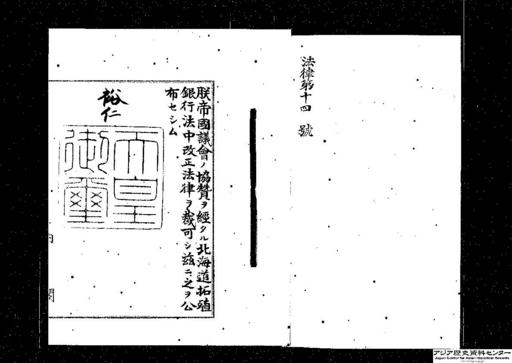 法律第十四號
朕帝國議會ノ協贊ヲ經タル北海道拓殖
銀行法中改正法律ヲ裁可シ茲ニ之ヲ公
布セシム
裕仁
天皇
御璽
内閣
アジア歴史資料センター
Japan Center for Asian Historical Records